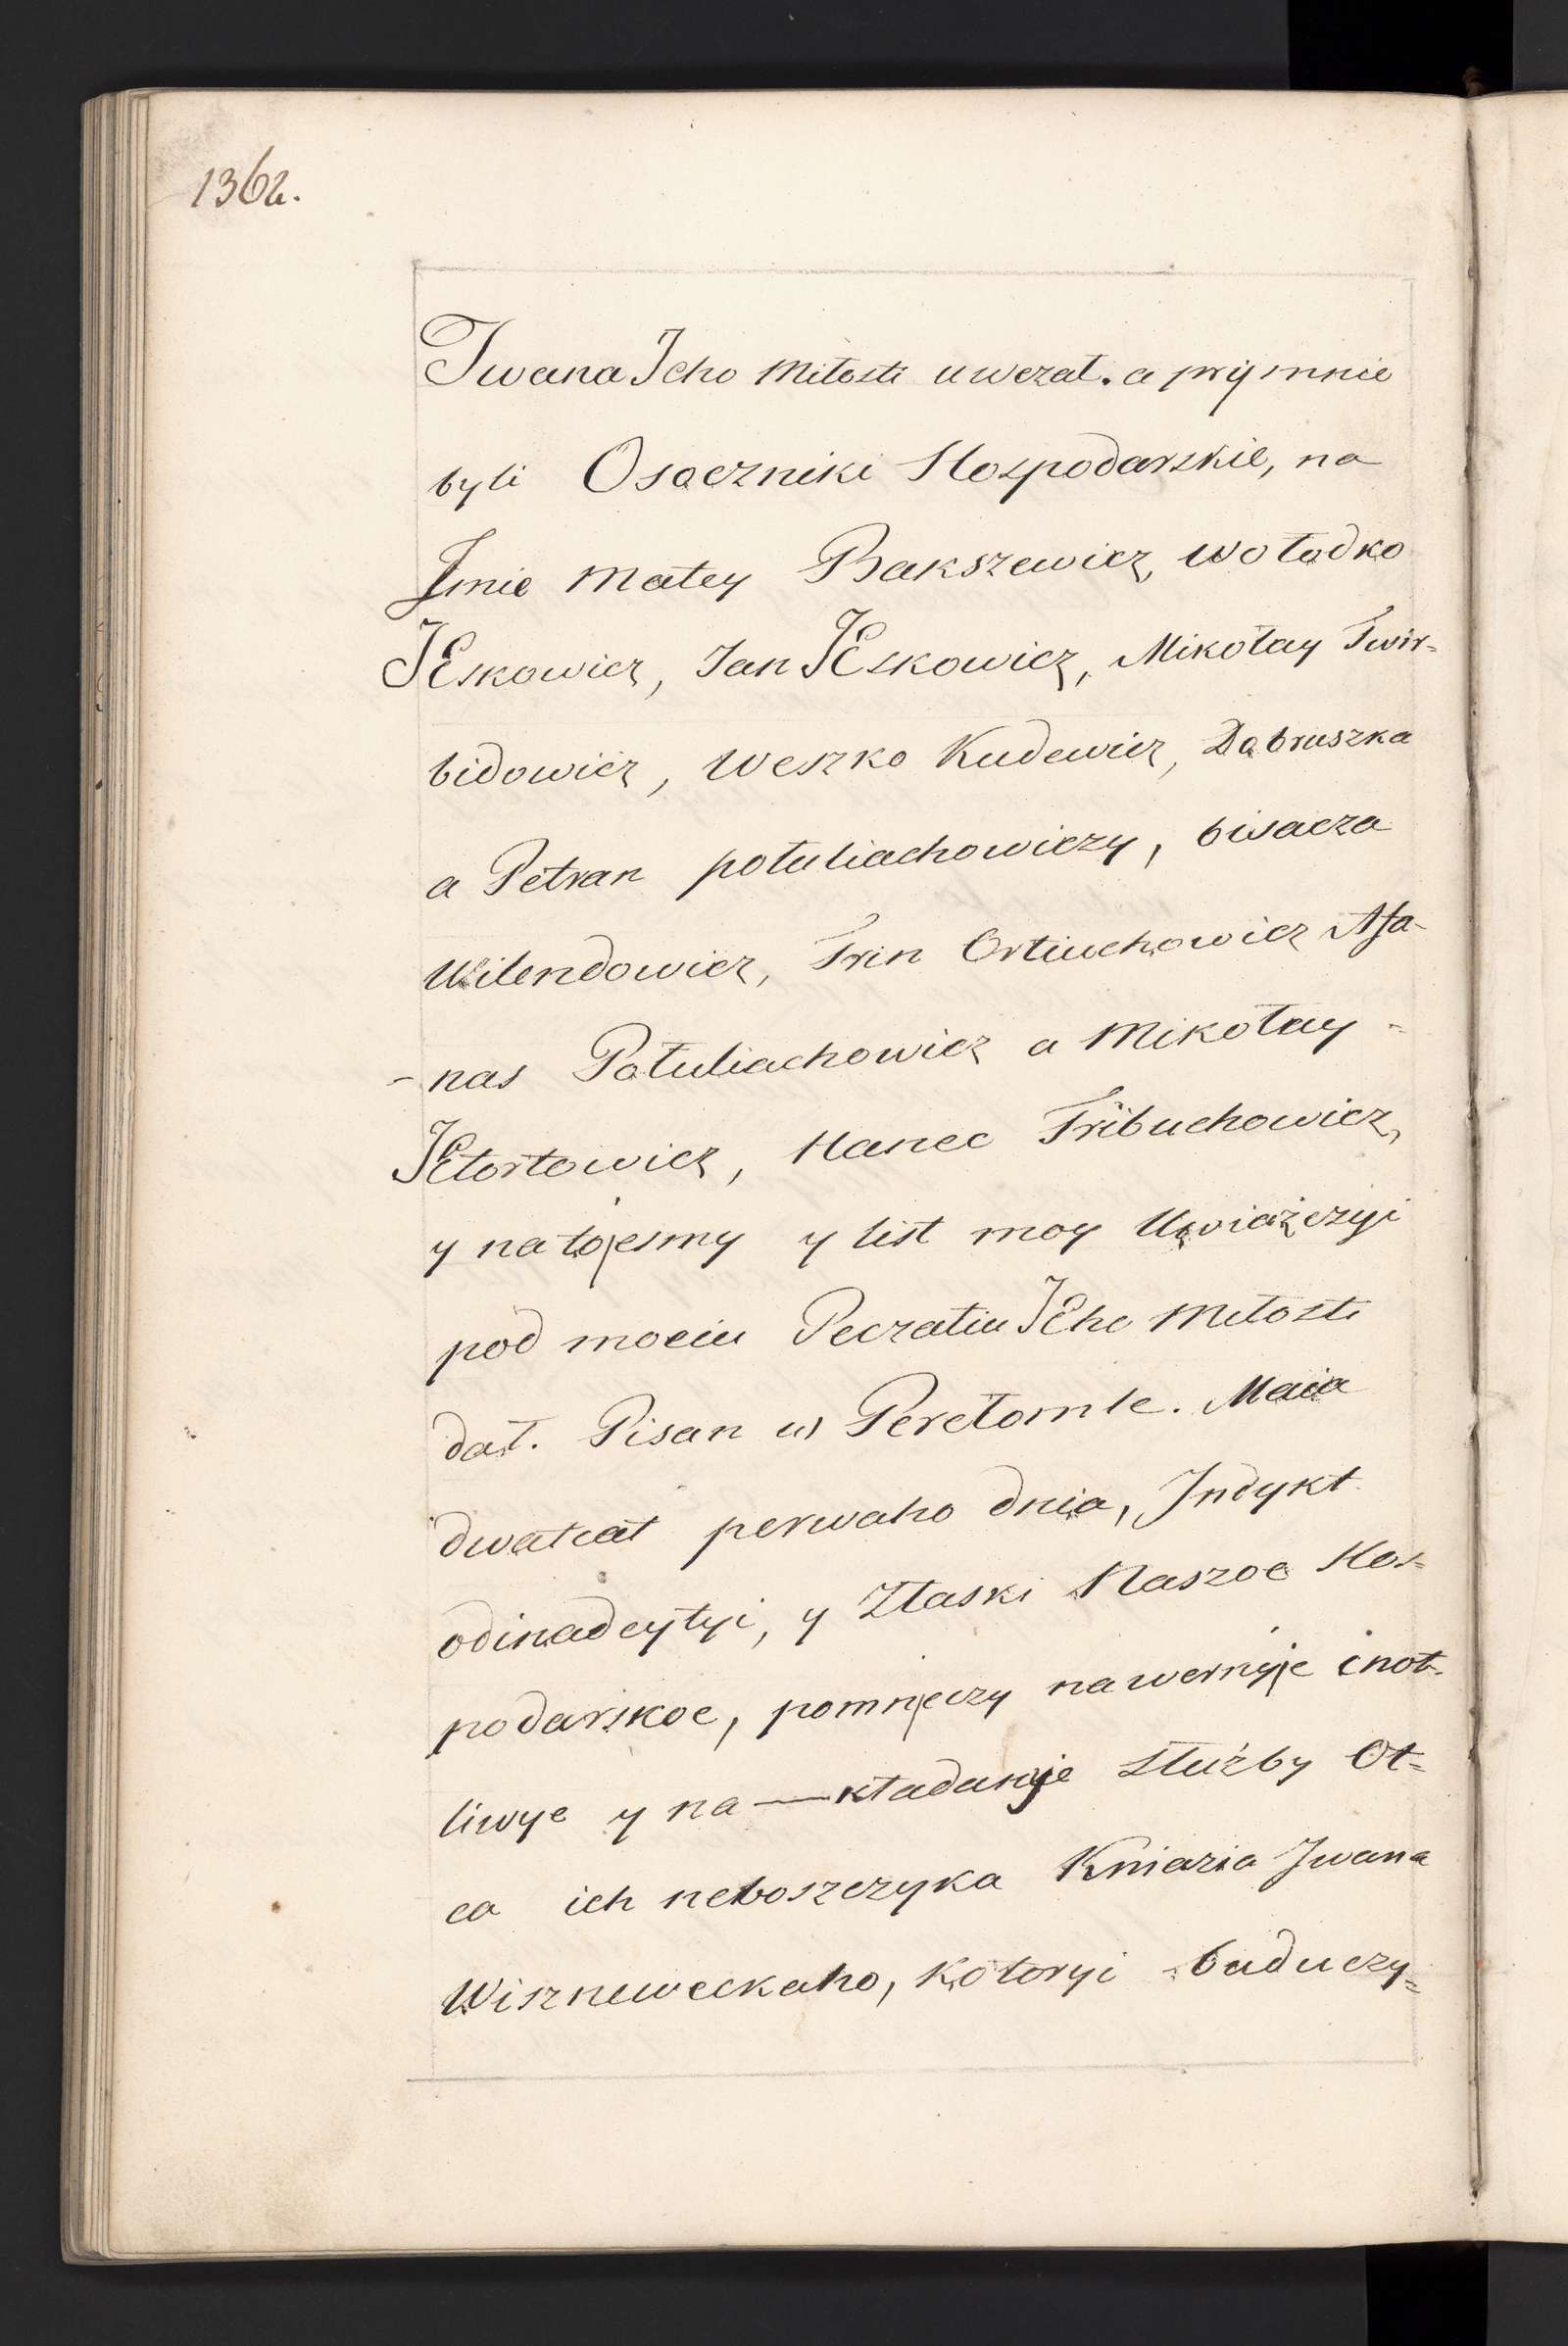 1362.
Iwana Jeho Miłosti uwezał. a pryj mnie
byli Osoczniki Hospodarskie, na
Imie Matey Bakszewicz, Wołodko
JEskowicz, Jan JEskowicz, Mikołay Twir=
bidowicz, Weszko Kudewicz, Dobruszka
a Petran połuliachowiczy, bisacza
Wilendowicz, Trin Ortiuchowicz Afa-
-nas Połuliachowicz a Mikołay -
JEtortowicz, Hanec Tribuchowicz,
y na tojesmy y list moy Uwiażczyi
pod moeiu Peczatiu JEho Miłosti
dał. Pisan w Perełomle. Maia
dwatcat perwaho dnia, Indykt
odinadcytyi, y Złaski Naszoe Hos=
podarskoe, pomnjeczy nawernyje cnot-
liwye y na—kładanyje służby Ot=
ca ich neboszczyka Kniazia Iwana
Wiszneweckaho, kotoryi buduczy=